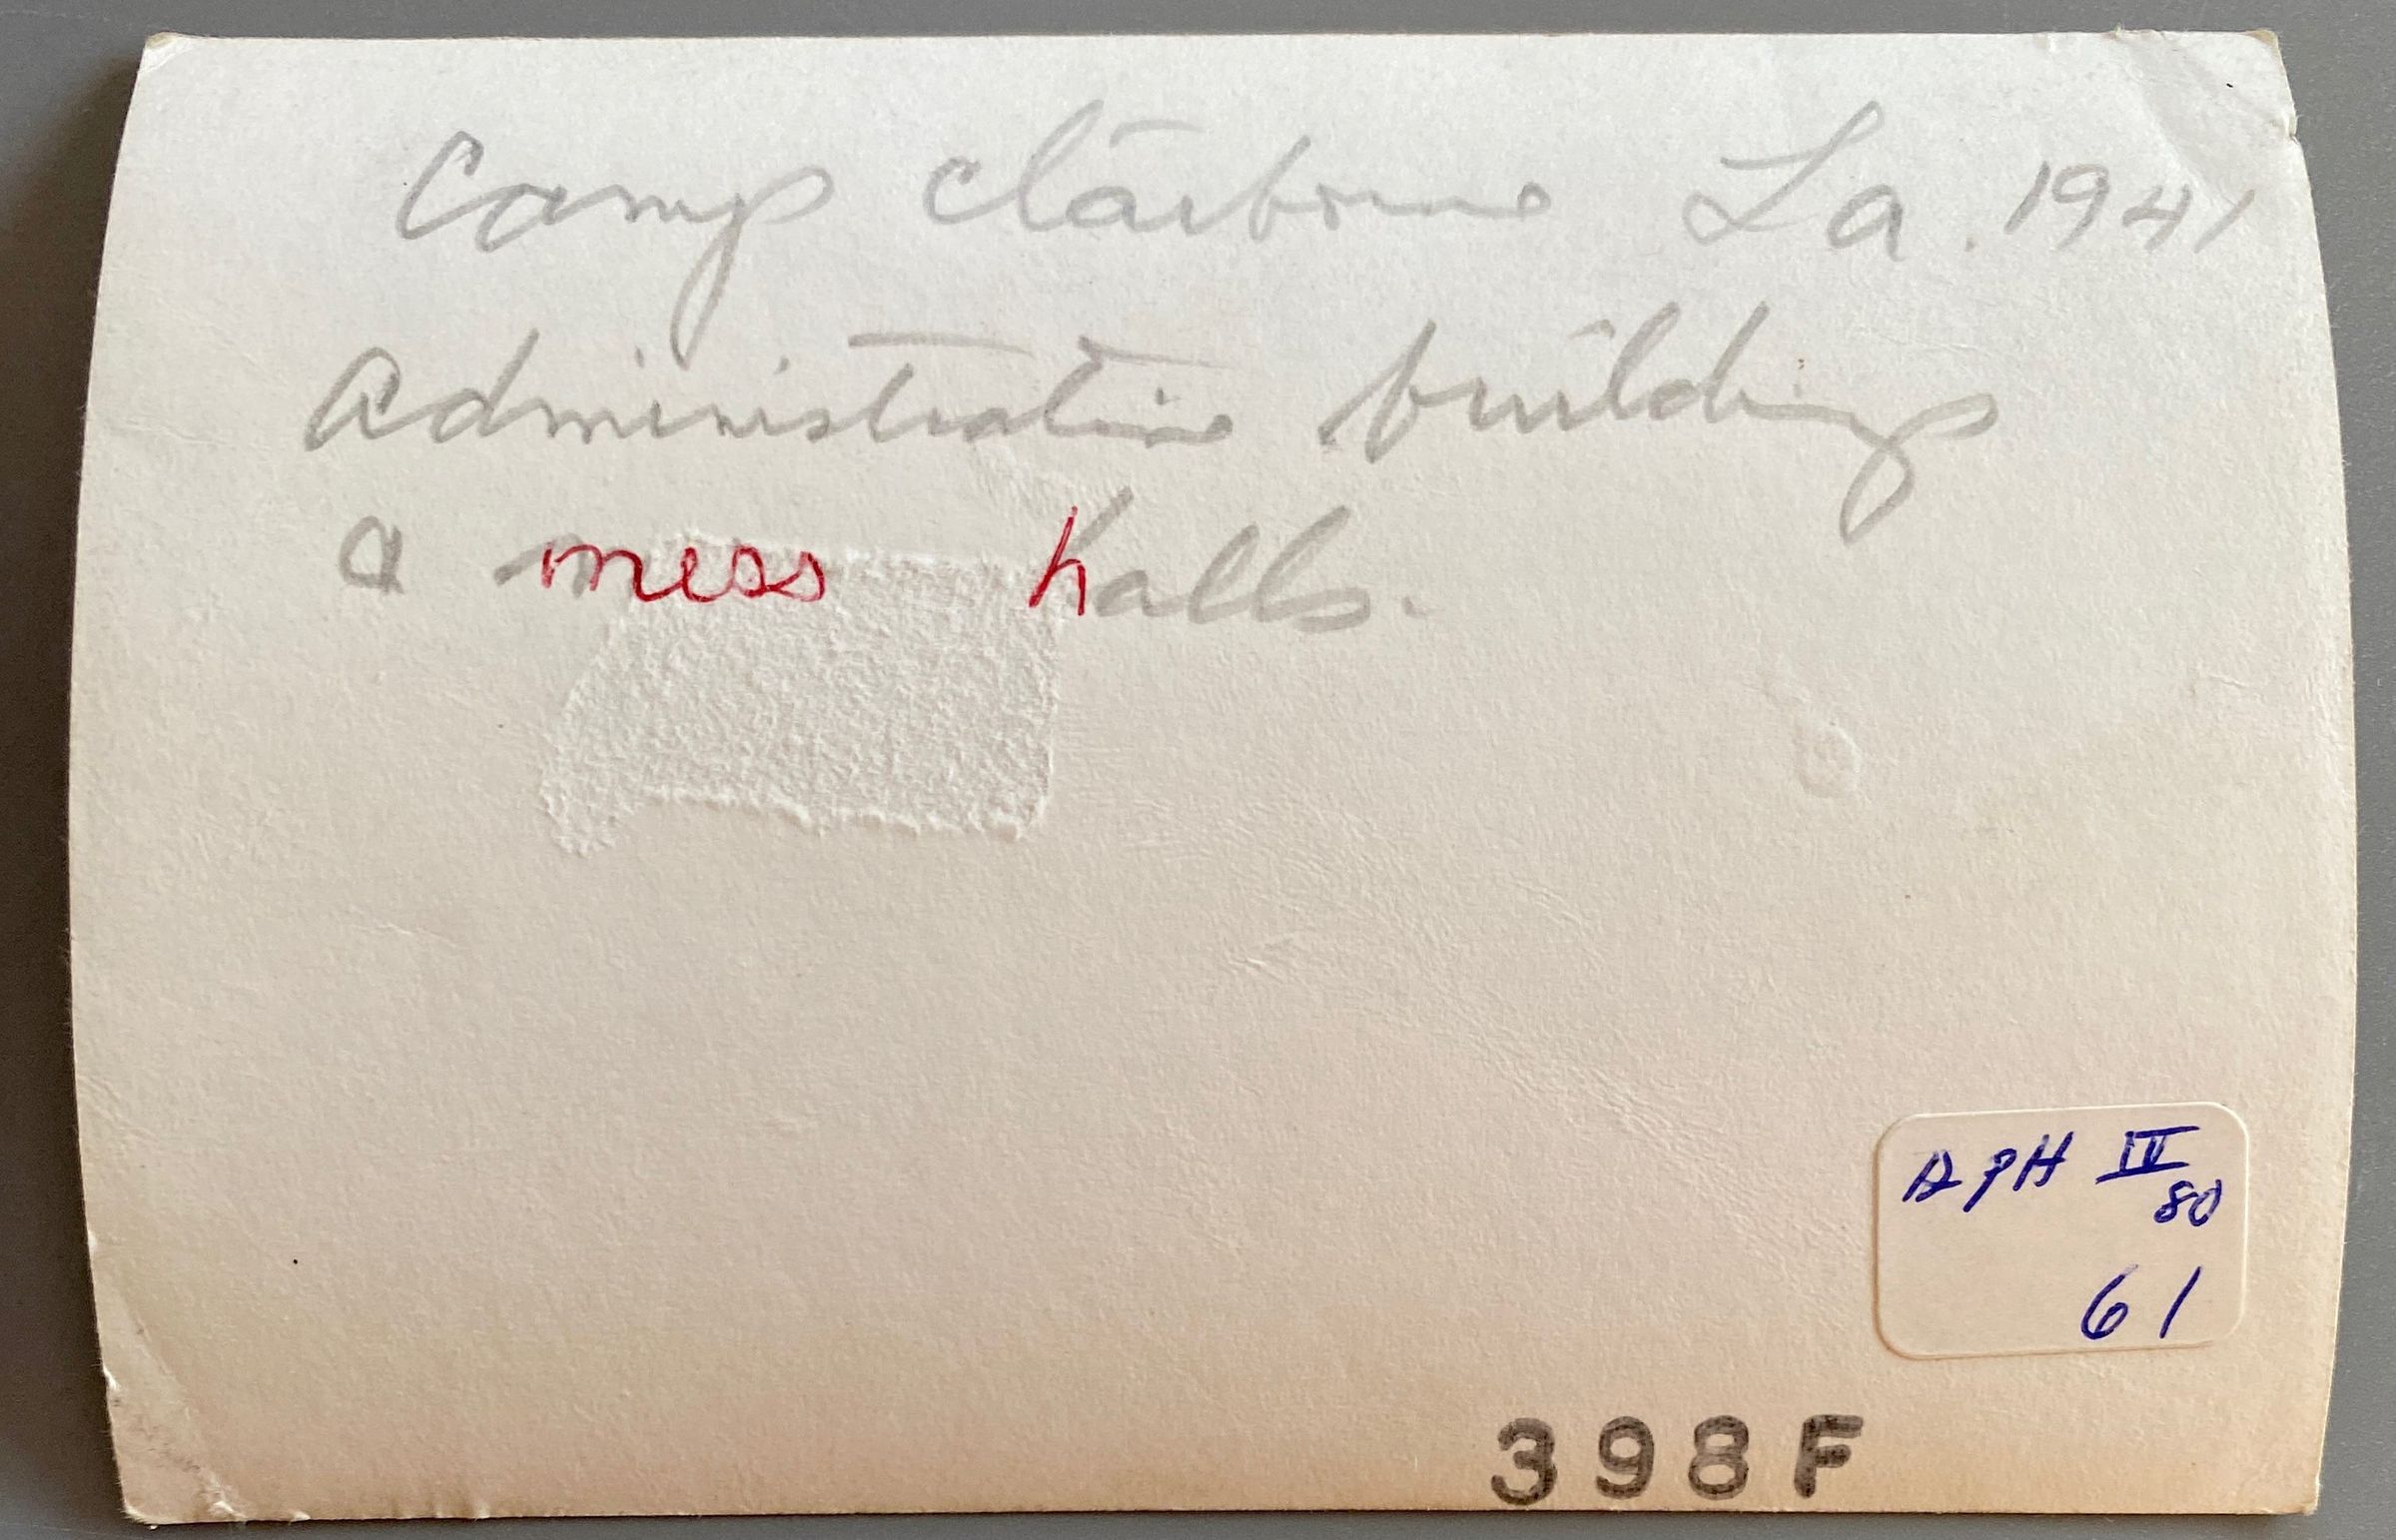 Camp Claiborne La. 1941
Administrative building
a mess halls.
IV
80
61
398F